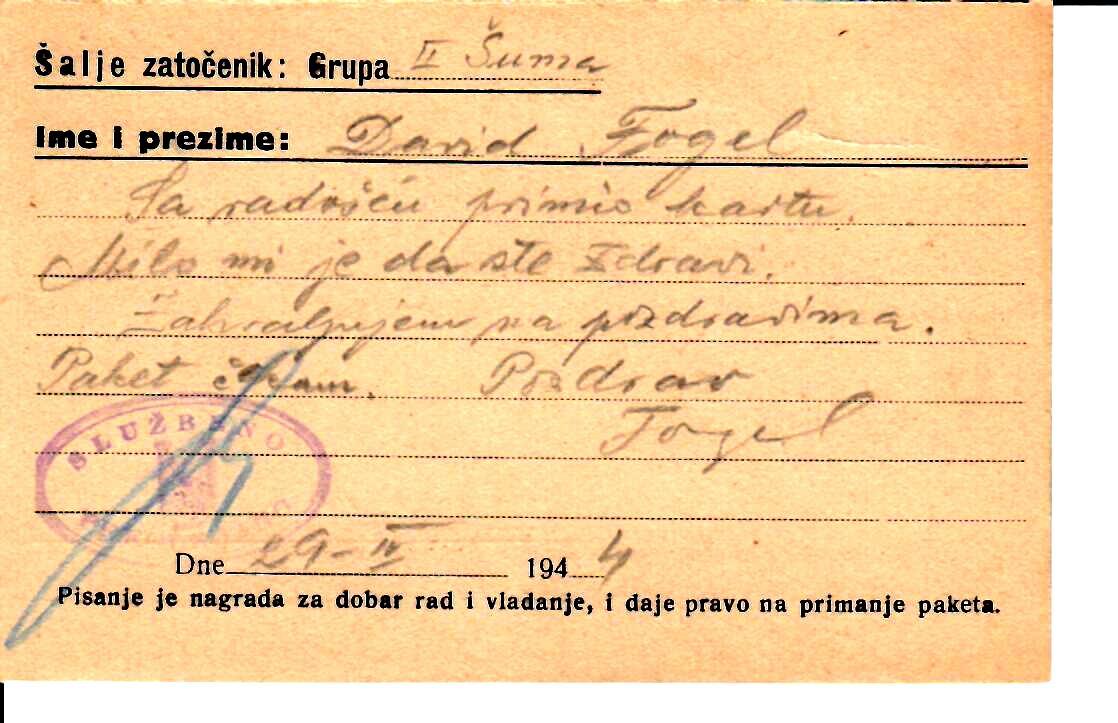 Šalje zatočenik: Grupa II Šuma
Ime i prezime: David Fogel
Sa radošću primio kartu.
Milo mi je da ste zdravi.
Zahvaljujem na pozdravima.
Paket čekam. Pozdrav
Fogel
SLUŽBENO
Dne 29-IV 1944
Pisanje je nagrada za dobar rad i vladanje, i daje pravo na primanje paketa.